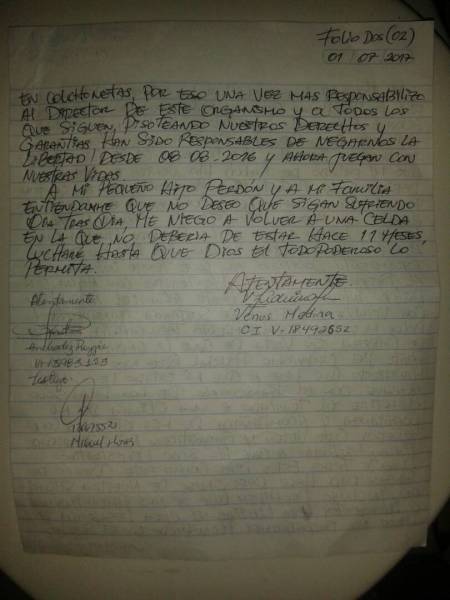 FOLIO DOS (02)
01 07 2017
EN COLCHONETAS, POR ESO UNA VEZ MAS RESPONSABILIZO
AL DIRECTOR DE ESTE ORGANISMO Y A TODOS LOS
QUE SIGUEN PISOTEANDO NUESTROS DERECHOS Y
GARANTIAS, HAN SIDO RESPONSABLES DE NEGARNOS LA
LIBERTAD DESDE 08.08.2016 Y AHORA JUEGAN CON
NUESTRAS VIDAS.
A MI PEQUEÑO HIJO PERDÓN Y A MI FAMILIA
ENTIENDAME QUE NO DESEO QUE SIGAN SUFRIENDO
DIA TRAS DIA, ME NIEGO A VOLVER A UNA CELDA
EN LA QUE NO DEBERIA DE ESTAR HACE 11 MESES,
LUCHARE HASTA QUE DIOS EL TODOPODEROSO LO
PERMITA.
ATENTAMENTE
Venus Medina
CI V-18492652
Atentamente
Testigo